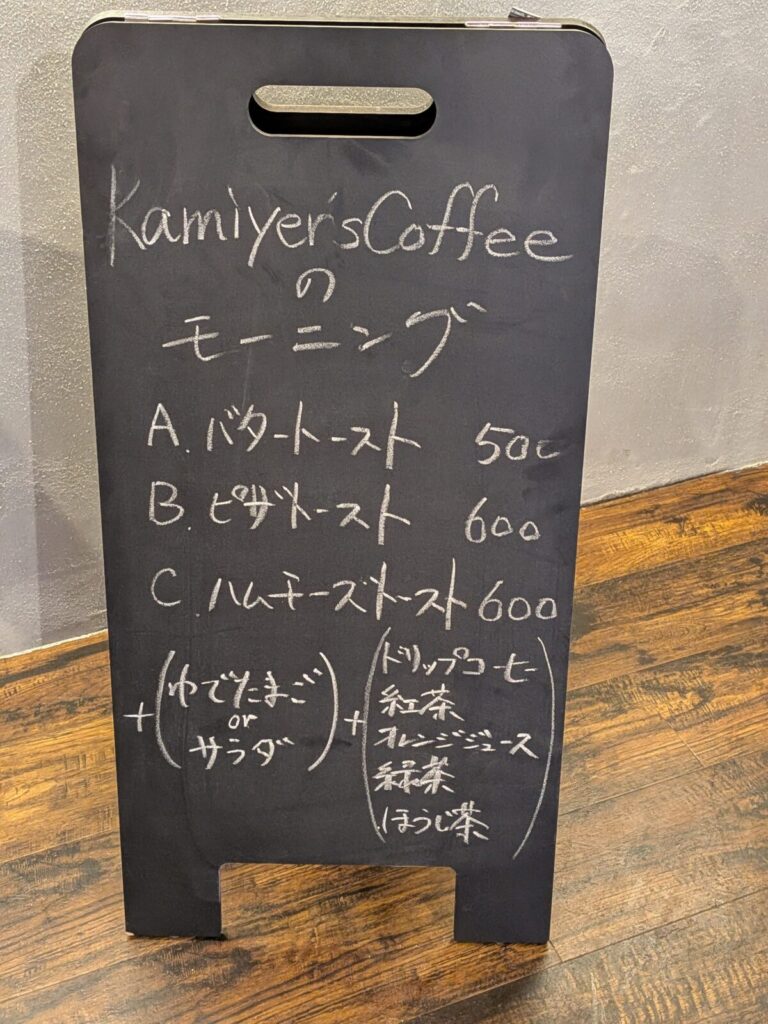 Kamiyer'sCoffee
の
モーニング
A. バタートースト 500
B. ピザトースト 600
C. ハムチーズトースト 600
+(ゆでたまご or サラダ)+(ドリップコーヒー
紅茶
オレンジジュース
緑茶
ほうじ茶)